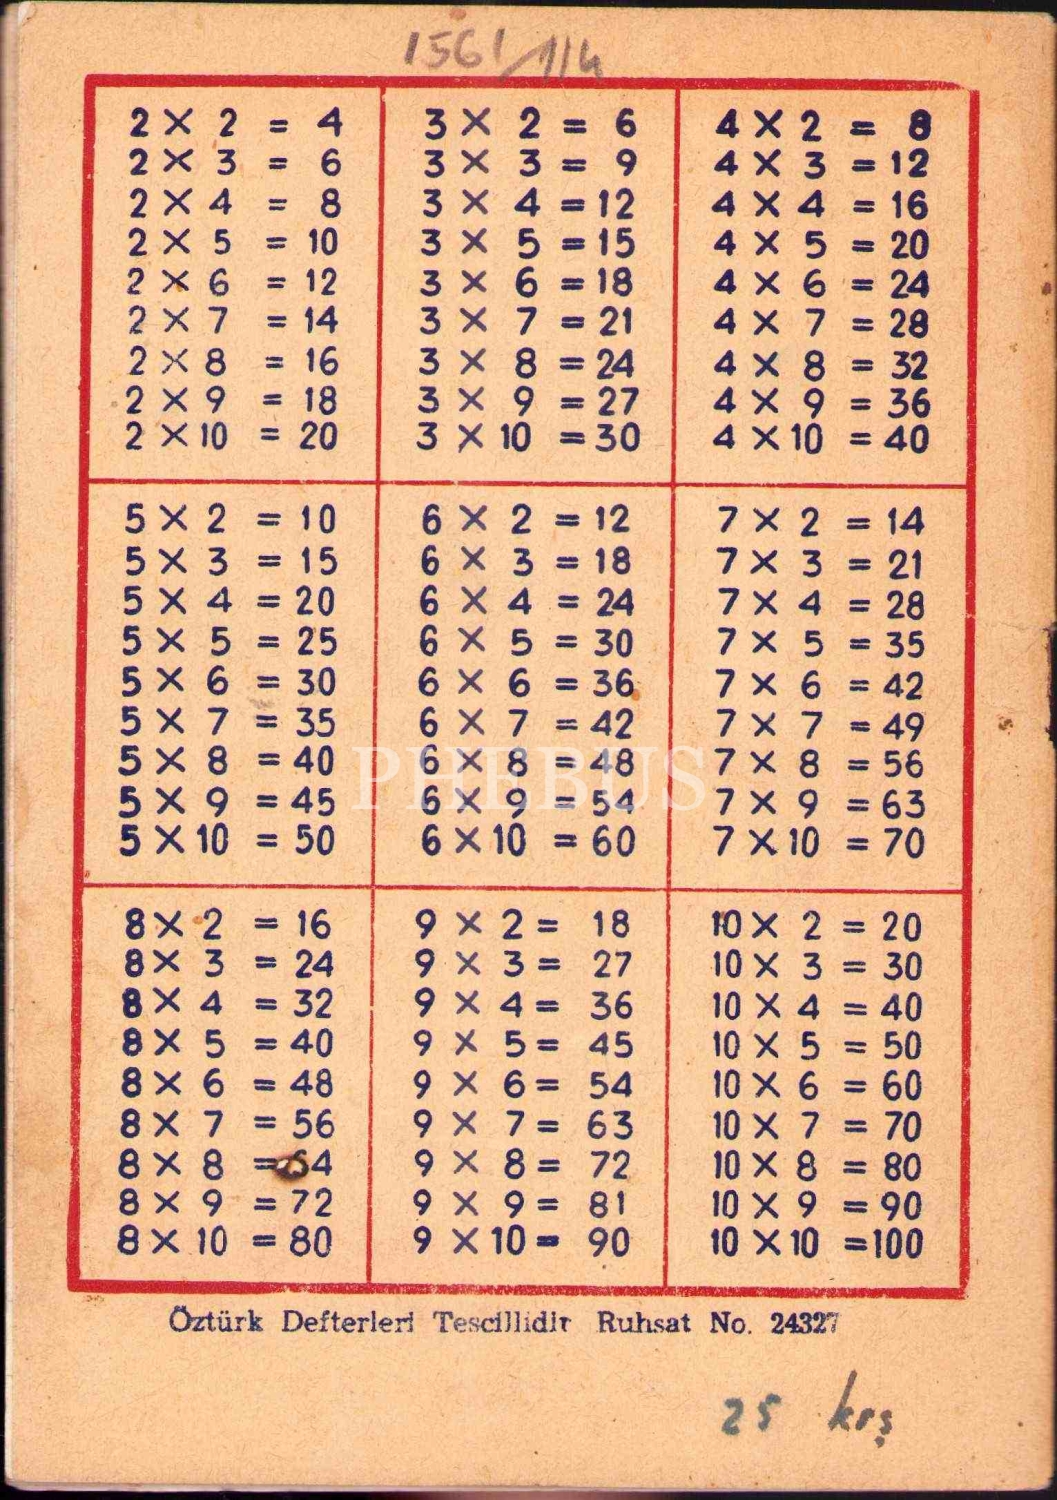 1561/114
2 × 2 = 4
2 × 3 = 6
2 × 4 = 8
2 × 5 = 10
2 × 6 = 12
2 × 7 = 14
2 × 8 = 16
2 × 9 = 18
2 × 10 = 20
3 × 2 = 6
3 × 3 = 9
3 × 4 = 12
3 × 5 = 15
3 × 6 = 18
3 × 7 = 21
3 × 8 = 24
3 × 9 = 27
3 × 10 = 30
4 × 2 = 8
4 × 3 = 12
4 × 4 = 16
4 × 5 = 20
4 × 6 = 24
4 × 7 = 28
4 × 8 = 32
4 × 9 = 36
4 × 10 = 40
5 × 2 = 10
5 × 3 = 15
5 × 4 = 20
5 × 5 = 25
5 × 6 = 30
5 × 7 = 35
5 × 8 = 40
5 × 9 = 45
5 × 10 = 50
6 × 2 = 12
6 × 3 = 18
6 × 4 = 24
6 × 5 = 30
6 × 6 = 36
6 × 7 = 42
6 × 8 = 48
6 × 9 = 54
6 × 10 = 60
7 × 2 = 14
7 × 3 = 21
7 × 4 = 28
7 × 5 = 35
7 × 6 = 42
7 × 7 = 49
7 × 8 = 56
7 × 9 = 63
7 × 10 = 70
PHEBUS
8 × 2 = 16
8 × 3 = 24
8 × 4 = 32
8 × 5 = 40
8 × 6 = 48
8 × 7 = 56
8 × 8 = 64
8 × 9 = 72
8 × 10 = 80
9 × 2 = 18
9 × 3 = 27
9 × 4 = 36
9 × 5 = 45
9 × 6 = 54
9 × 7 = 63
9 × 8 = 72
9 × 9 = 81
9 × 10 = 90
10 × 2 = 20
10 × 3 = 30
10 × 4 = 40
10 × 5 = 50
10 × 6 = 60
10 × 7 = 70
10 × 8 = 80
10 × 9 = 90
10 × 10 = 100
Öztürk Defterleri Tescillidir Ruhsat No. 24327
25 krş